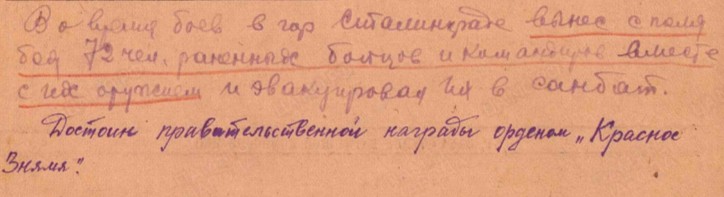 Во время боев в гор Сталинграде вынес с поля
боя 72 чел. раненных бойцов и командиров вместе
с их оружием и эвакуировал их в санбат.
Достоин правительственной награды орденом „Красное
Знамя".